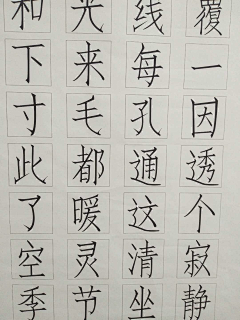 和光线覆
下来每一
寸毛孔因
此都通透
了暖这个
空灵清寂
季节坐静